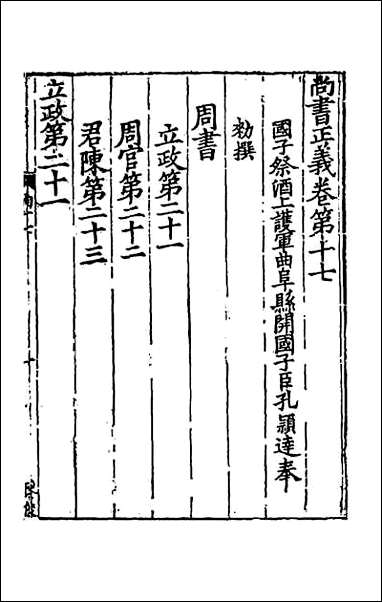 尚書正義卷第十七
國子祭酒上護軍曲阜縣開國子臣孔穎達奉
勑撰
周書
立政第二十一
周官第二十二
君陳第二十三
立政第二十一